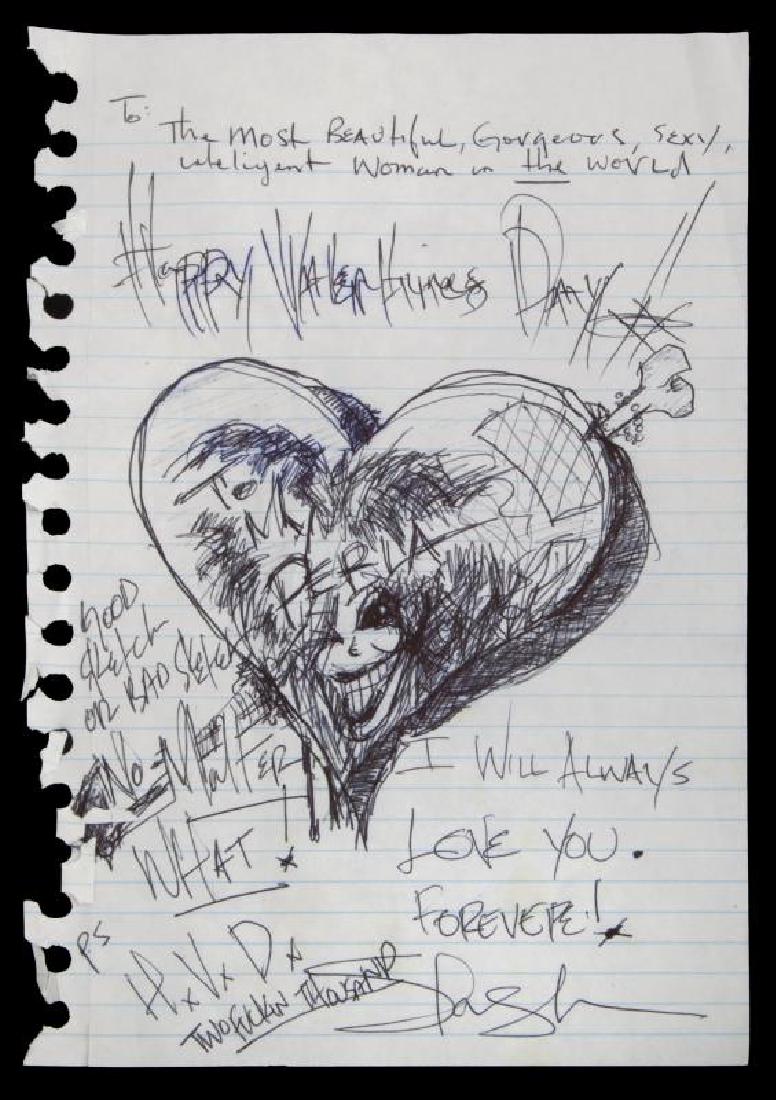 To:
The Most Beautiful, Gorgeous, Sexy,
inteligent Woman in the World
Happy Valentines Daay!!
To
My
Perla
Good
Sketch
or Bad Sketch
No Matter
What!
I Will Always
Love You.
Forever!
PS
H.V.D.
Two Fuckin Thousand
Slash